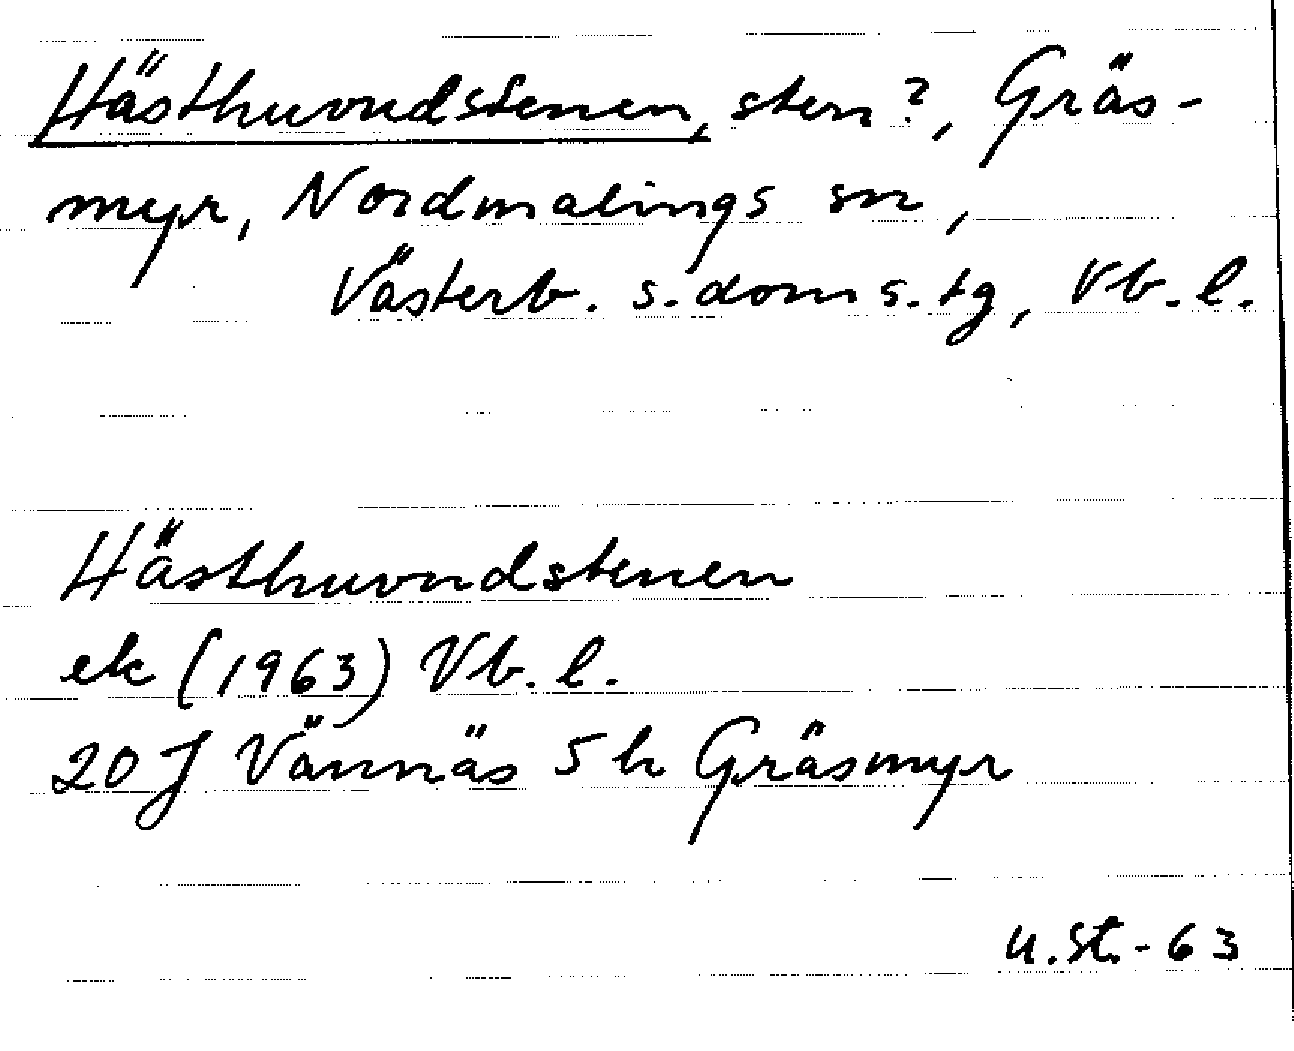 Hästhuvudstenen, sten?, Gräs-
myr, Nordmalings sn,
Västerb. s. doms. tg, Vb. l.
Hästhuvudstenen
ek (1963) Vb. l.
20 J Vännäs 5 h Gräsmyr
U.St.-63